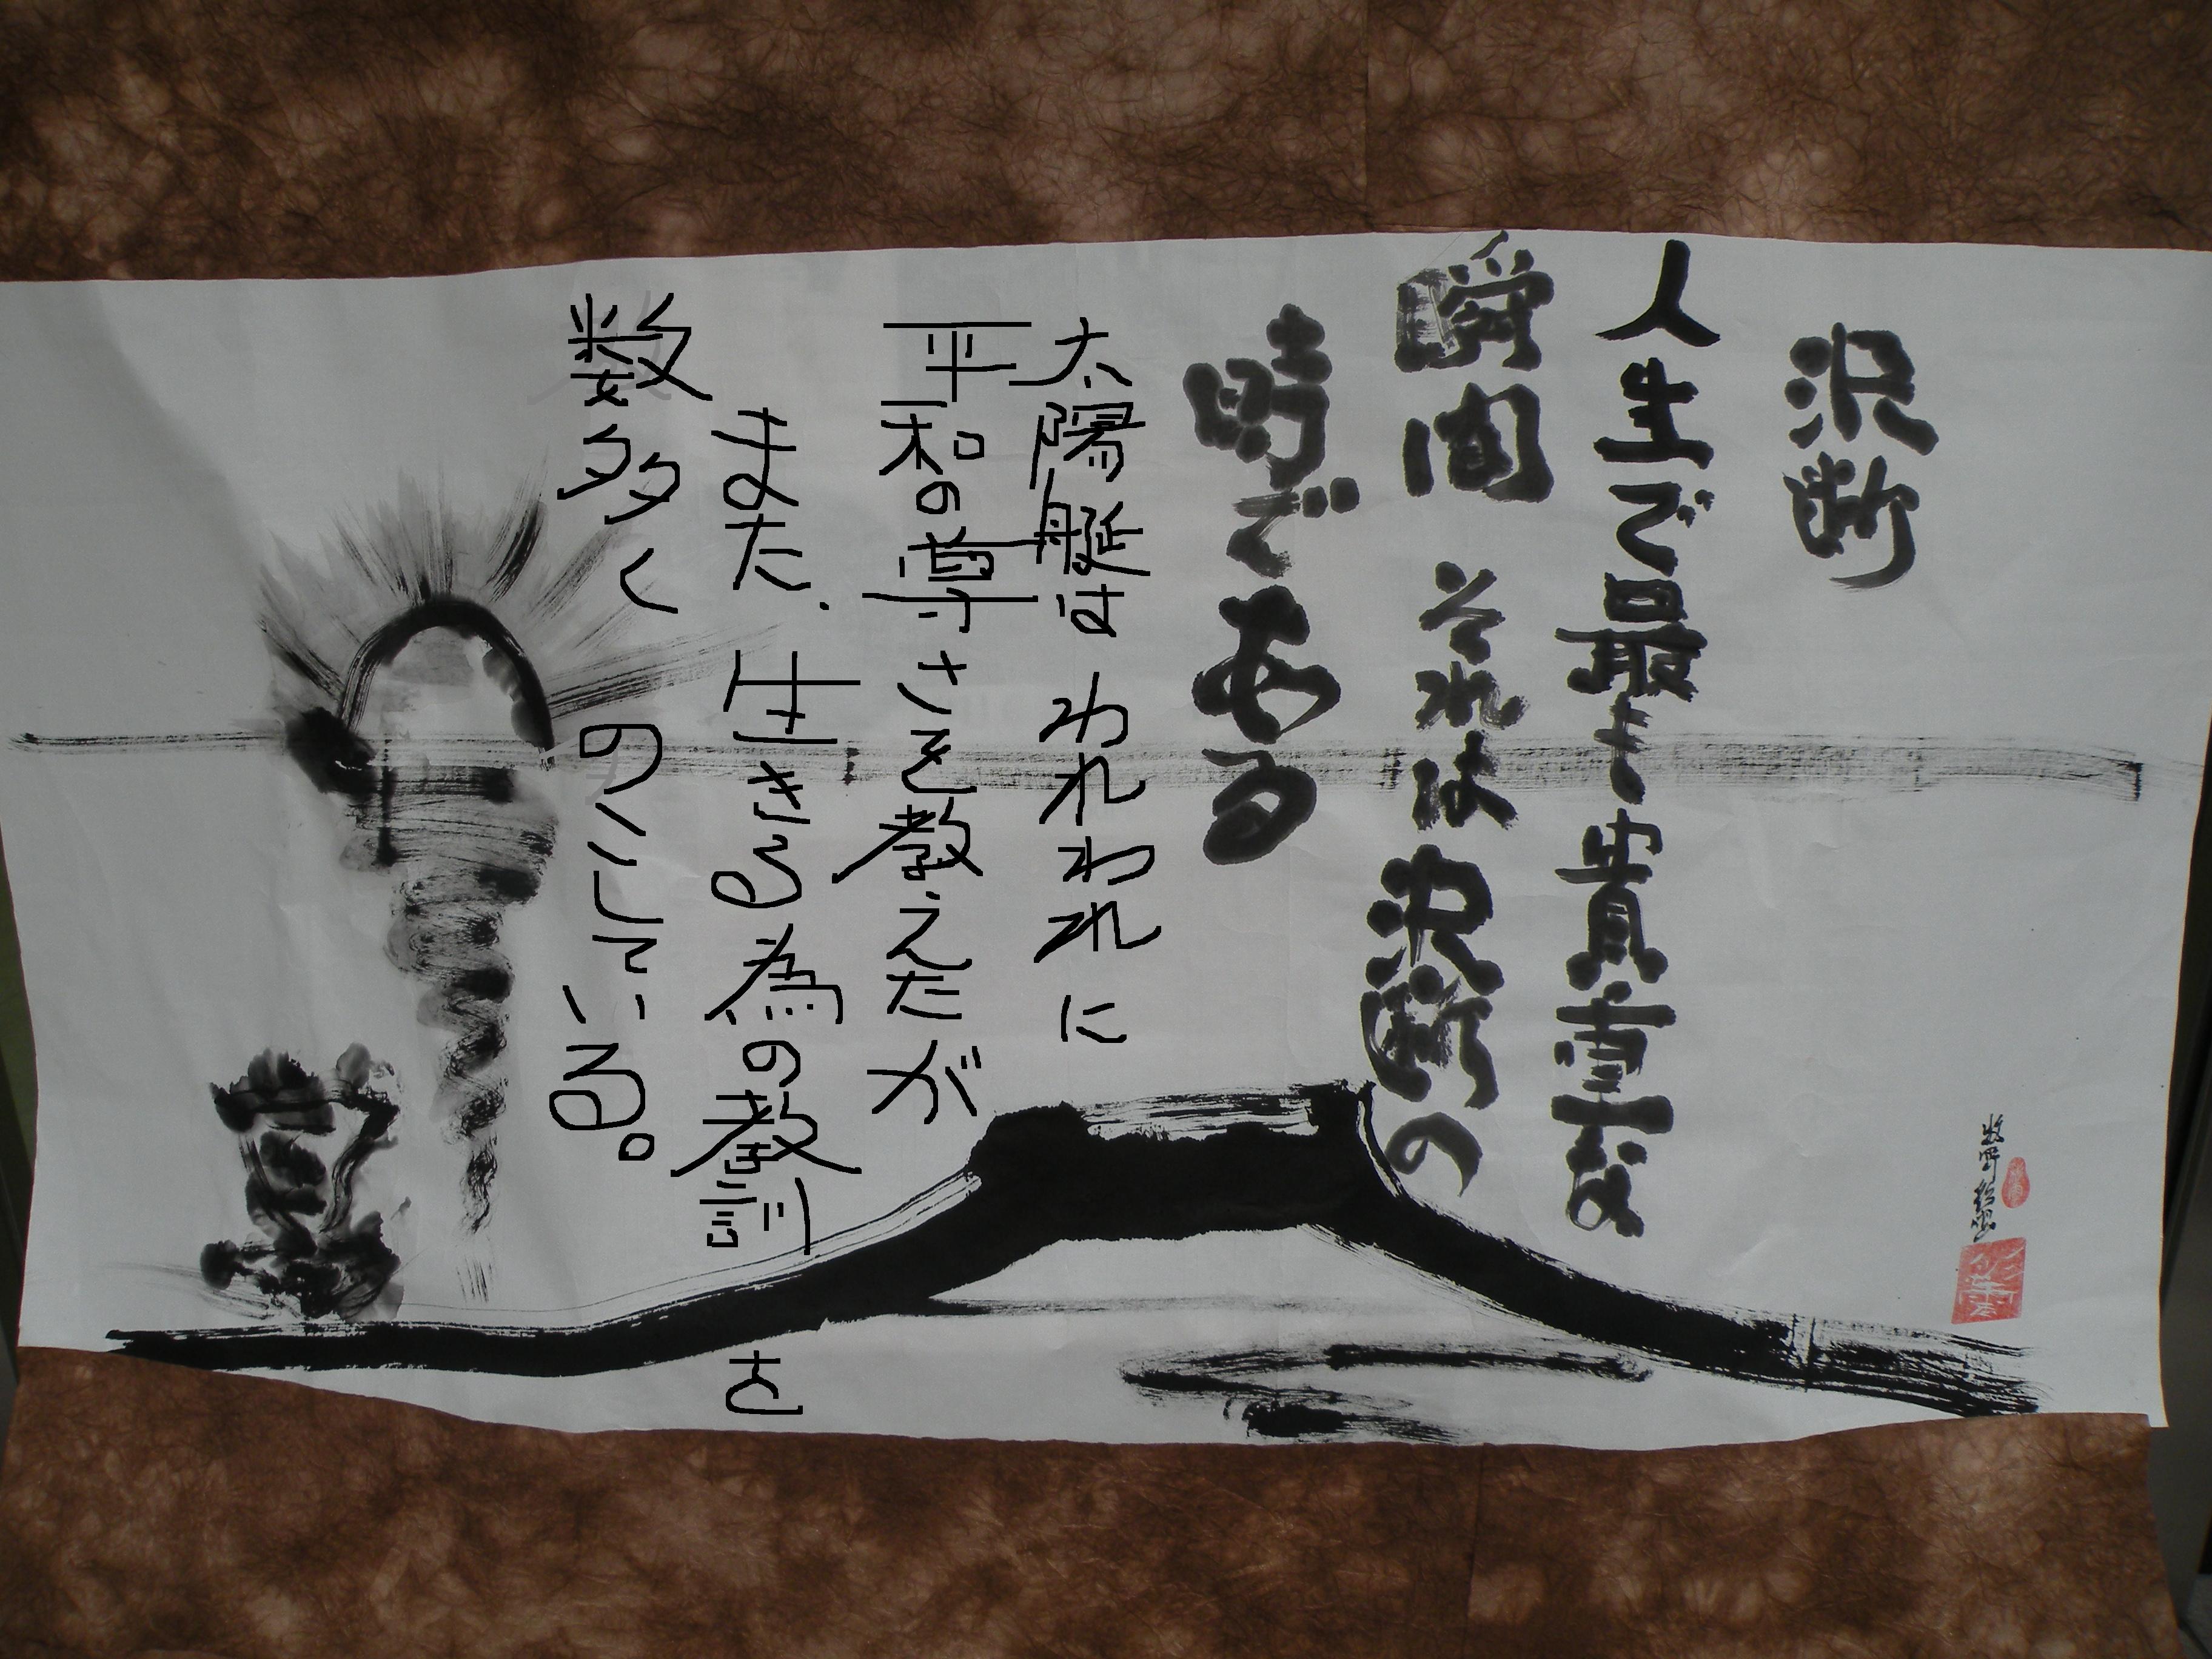 決断
人生で最も貴重な
瞬間 それは決断の
時である
太陽艇は われわれに
平和の尊さを教えたが
また、生きる為の教訓を
数多く のこしている。